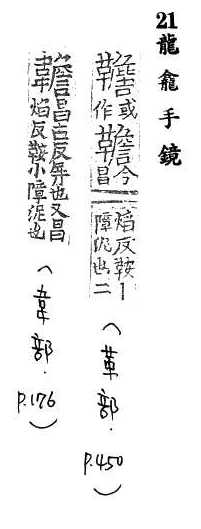 21 龍龕手鏡
或作今昌焰反鞍丨障泥也二(革部.P.450)
韂昌占反屏也又昌焰反鞍小障泥也(韋部.P.176)